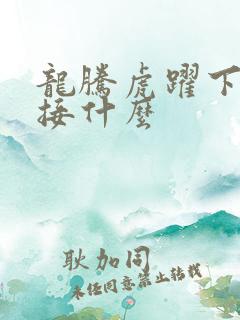 龍騰虎躍下
接什麼
耿加同
未经同意禁止转载